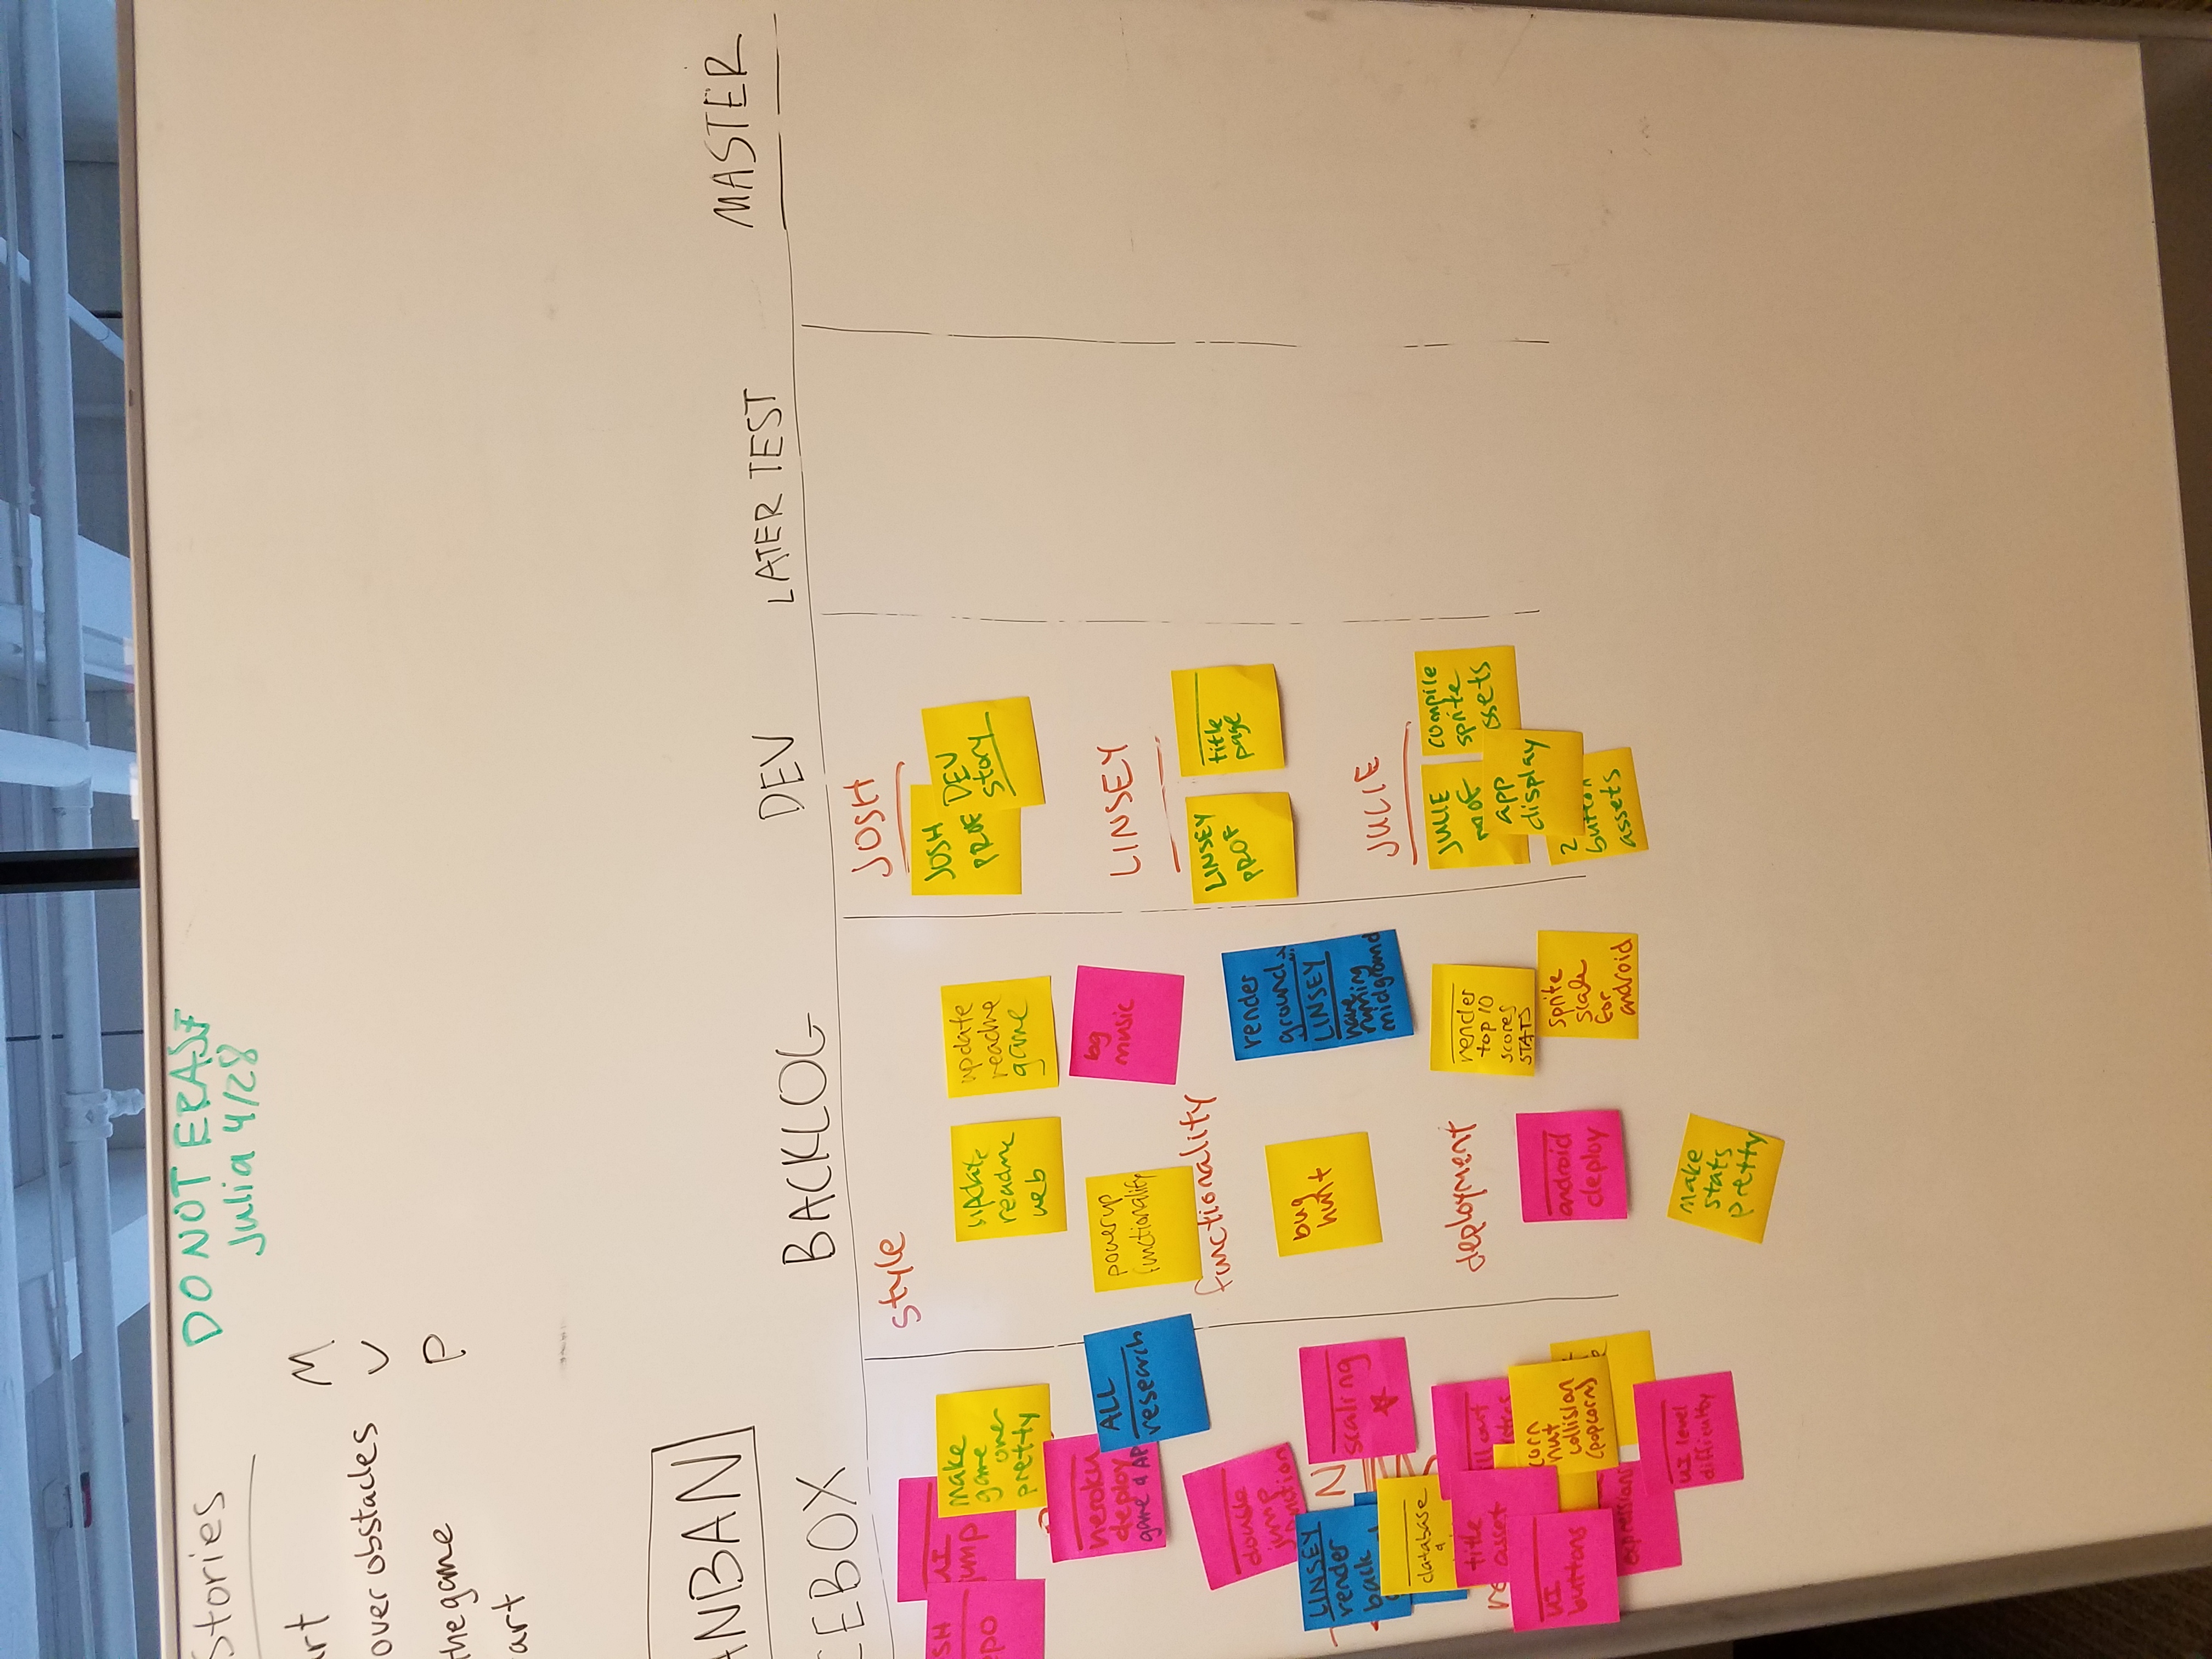 Stories
DO NOT ERASE
Julia 4/28
art
M
over obstacles
V
the game
P
art
ANBAN
CEBOX
BACKLOG
DEV
LATER TEST
MASTER
SH
epo
UI
jump
make
game
over
pretty
heroku
deploy
game & AP
ALL
research
double
jump
function
LINSEY
render
back
N
scaling
database
&
title
asset
ll out
re
UI
buttons
corn
nut
collision
(popcorn)
expressions
UI level
difficulty
style
update
readme
web
update
readme
game
powerup
functionality
bg
music
functionality
bug
hunt
render
ground
LINSEY
have
running
midground
deployment
render
top 10
scores
STATS
android
deploy
sprite
scale
for
android
make
stats
pretty
JOSH
JOSH
PROF
DEV
story
LINSEY
LINSEY
PROF
title
page
JULIE
JULIE
compile
sprite
ssets
app
display
2
button
assets